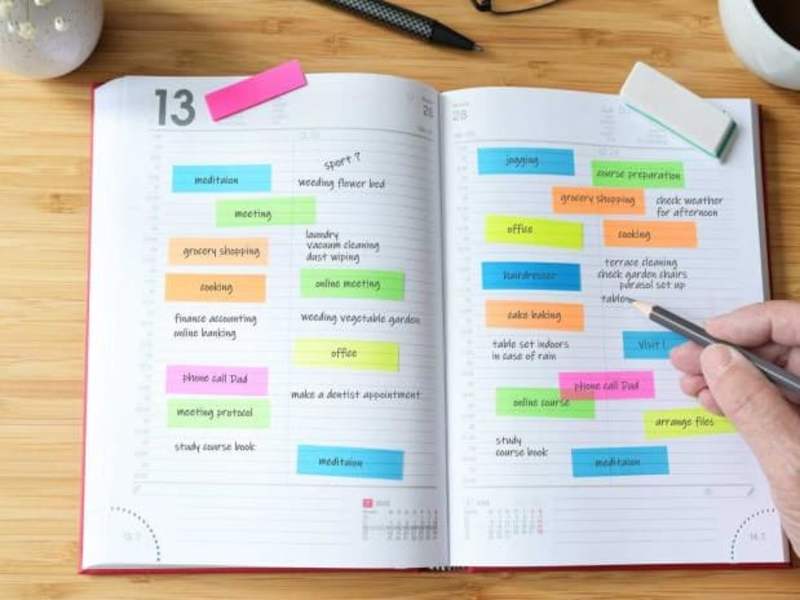 13
sport ?
meditaion
weeding flower bed
meeting
laundry
vacuum cleaning
dust wiping
grocery shopping
online meeting
cooking
finance accounting
online banking
weeding vegetable garden
office
phone call Dad
make a dentist appointment
meeting protocol
study course book
meditaion
28
jogging
course preparation
grocery shopping
check weather
for afternoon
office
cooking
terrace cleaning
check garden chairs
parasol set up
table
hairdresser
cake baking
table set indoors
in case of rain
Visit !
phone call Dad
online course
arrange files
study
course book
meditaion